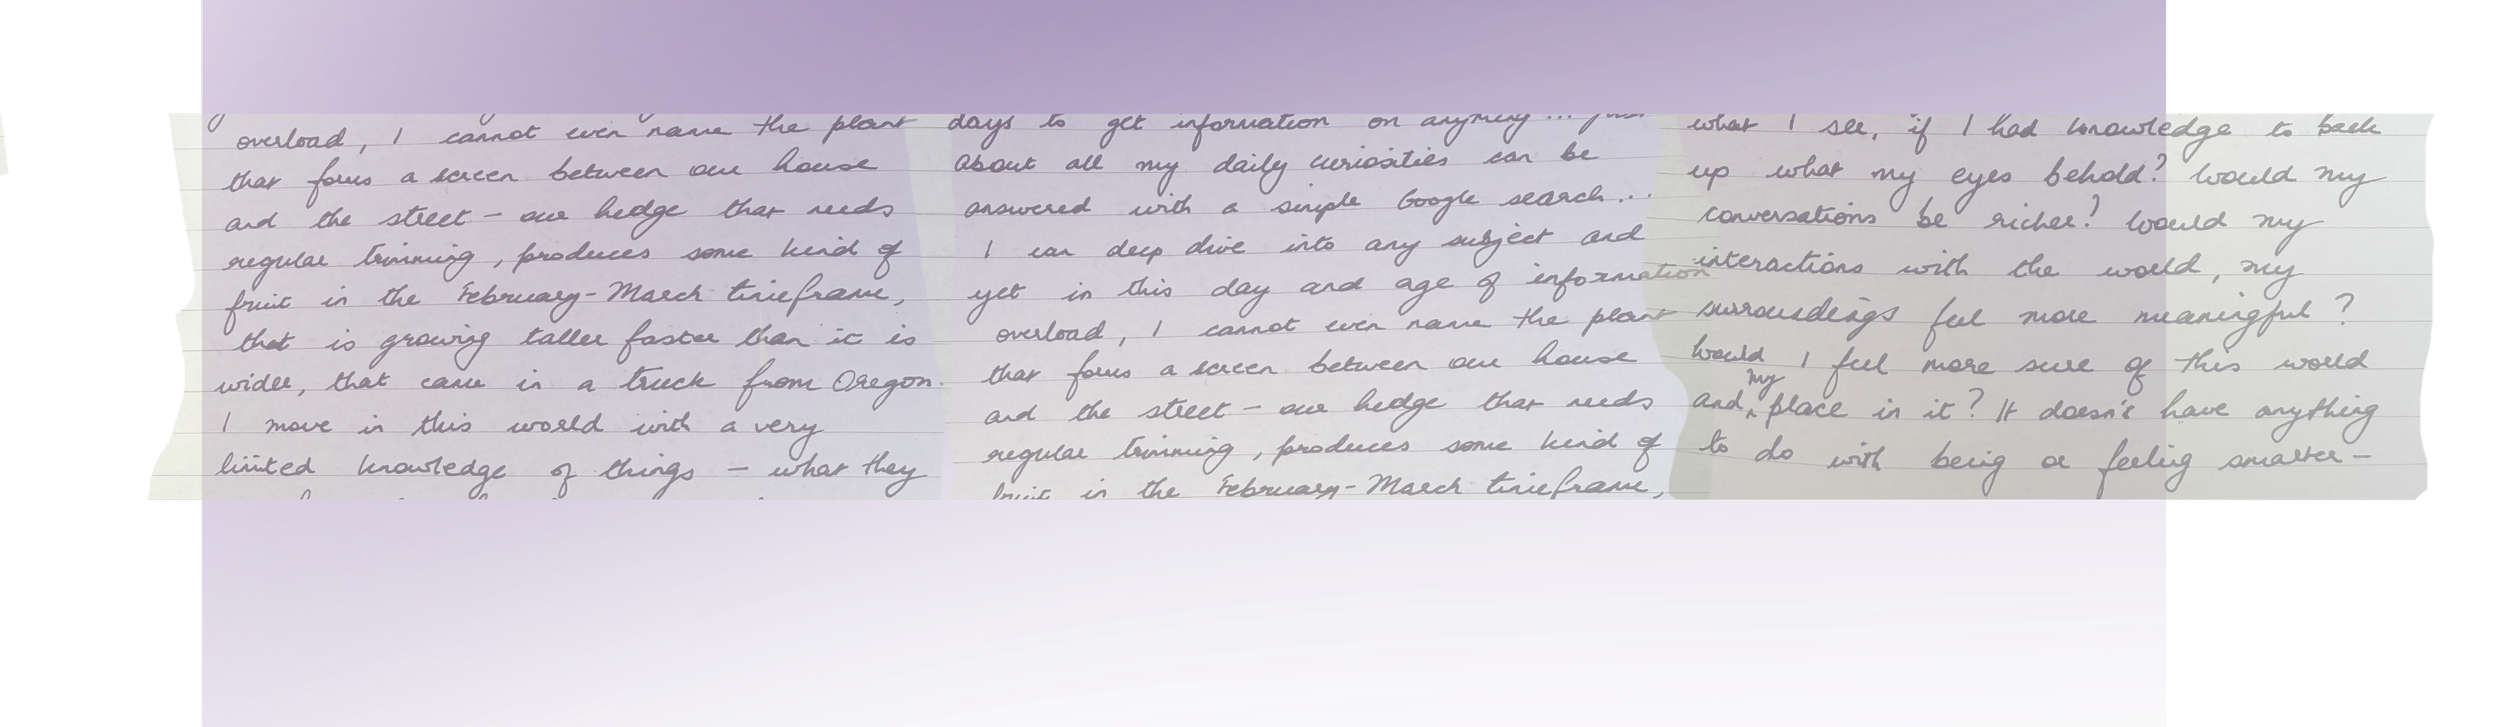 overload, I cannot even name the plant
that forms a screen between our house
and the street - our hedge that needs
regular trimming, produces some kind of
fruit in the February-March timeframe,
that is growing taller faster than it is
wider, that came in a truck from Oregon.
I move in this world with a very
limited knowledge of things - what they
days to get information on anything... just
about all my daily curiosities can be
answered with a simple Google search...
I can deep dive into any subject and
yet in this day and age of information
overload, I cannot even name the plant
that forms a screen between our house
and the street - our hedge that needs
regular trimming, produces some kind of
fruit in the February-March timeframe,
what I see, if I had knowledge to back
up what my eyes behold? Would my
conversations be richer? Would my
interactions with the world, my
surroundings feel more meaningful?
Would I feel more sure of this world
and my place in it? It doesn't have anything
to do with being or feeling smarter-